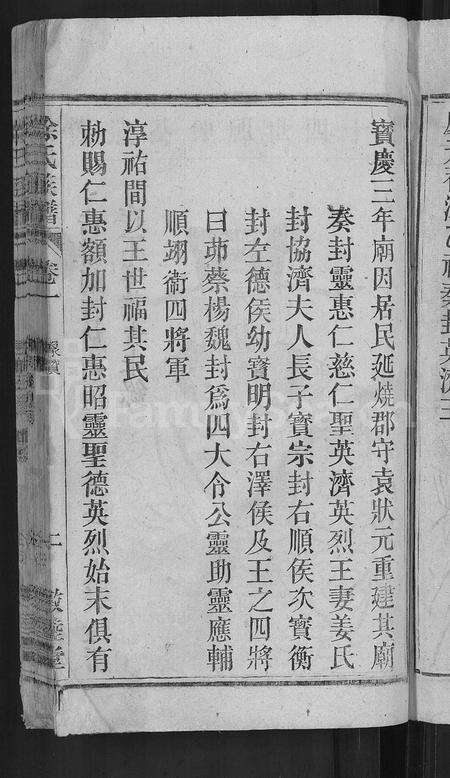 寶慶三年廟因居民延燒郡守袁狀元重建其廟
奏封靈惠仁慈仁聖英濟英烈王妻姜氏
封協濟夫人長子寶宗封右順侯次寶衡
封左德侯幼寶明封右澤侯及王之四將
曰茆蔡楊魏封爲四大令公靈助靈應輔
順翊衞四將軍
淳祐間以王世福其民
勅賜仁惠額加封仁惠昭靈聖德英烈始末俱有
徐氏族譜 卷一
二